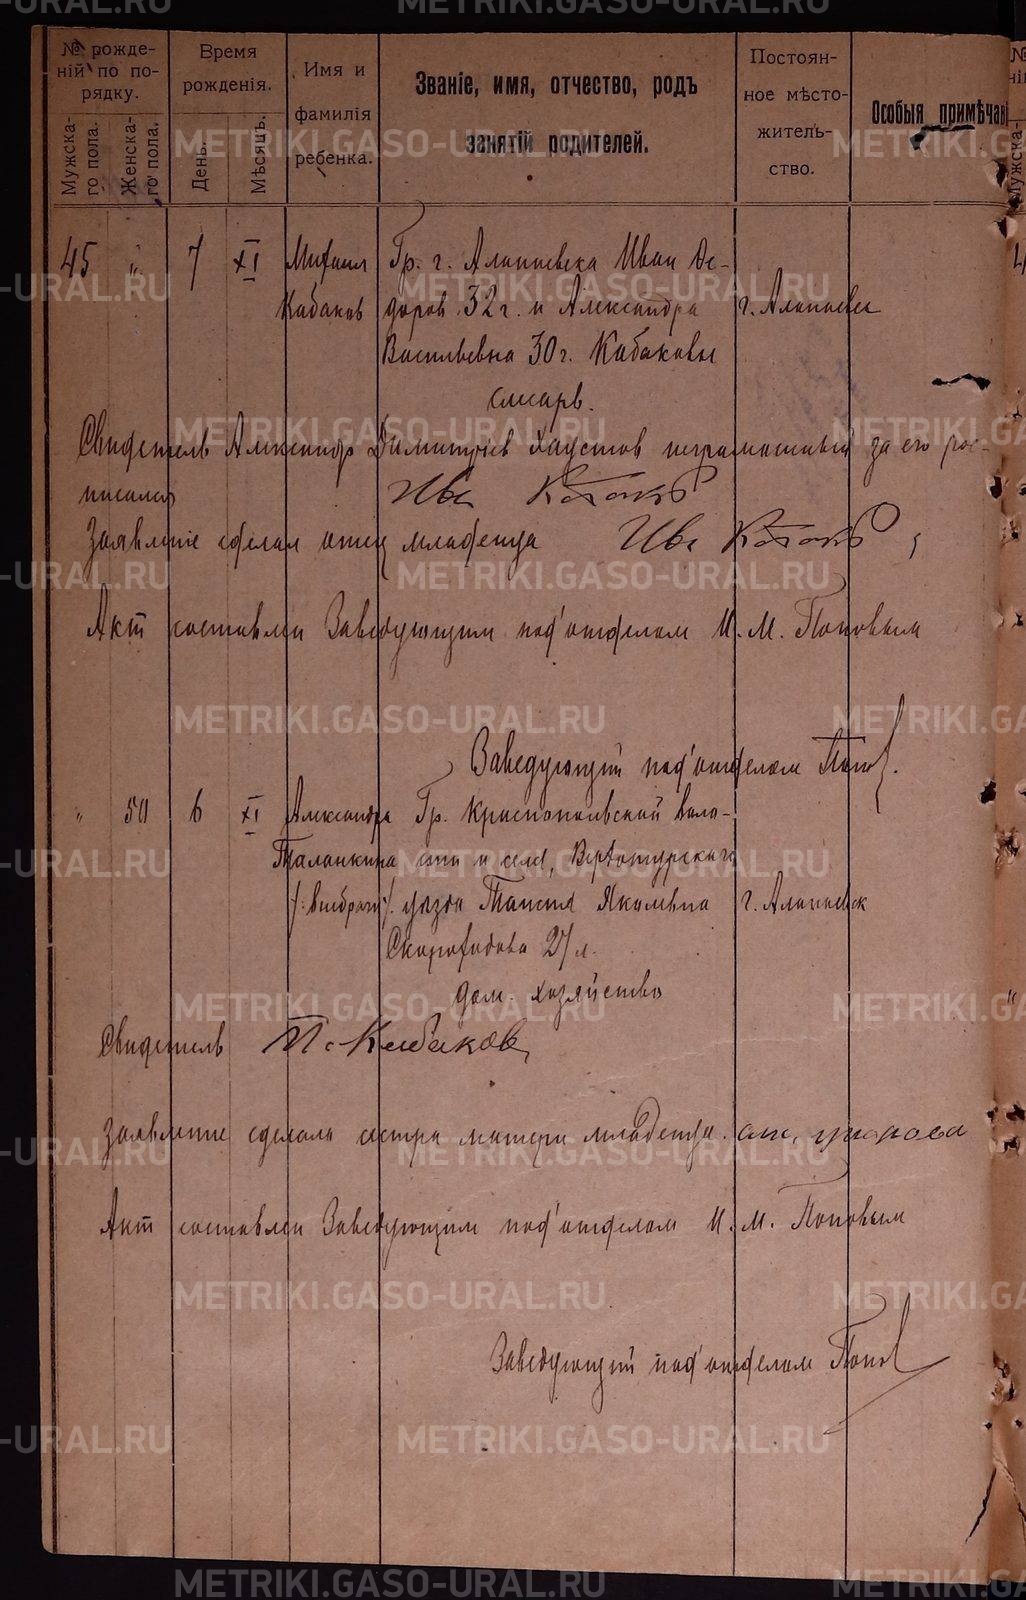 № рожде-
ній по по-
рядку.
Мужска-
го пола.
Женска-
го пола.
Время
рожденія.
День.
Мѣсяцъ.
Имя и
фамилія
ребенка.
Званіе, имя, отчество, родъ
занятій родителей.
Постоян-
ное мѣсто-
житель-
ство.
Особыя примѣчан
45 " 7 XI Михаил Гр. г. Алапаевска Иван Фе-
Кабаков доров. 32 г. и Александра г. Алапаевск
Васильевна 30 г. Кабаковы
слесарь.
Свидетель Александр Димитріев Хаустов неграмотный за его рос-
писался Ив Кабаков
Заявление сделал отец младенца Ив Кабаков
Акт составлен Заведующим под'отделом И. М. Поповым
Заведующий под'отделом Попов
" 50 6 XI Александра Гр. Краснопольской воло-
Таланкина сти и села, Верхотурскаго
/:внебрачн:/ уезда Таисия Якимовна г. Алапаевск
Скороходова 27 л.
дом. хозяйство
Свидетель И. Кабаков
Заявление сделала сестра матери младенца.
Акт составлен Заведующим под'отделом И. М. Поповым
Заведующий под'отделом Попов
METRIKI.GASO-URAL.RU